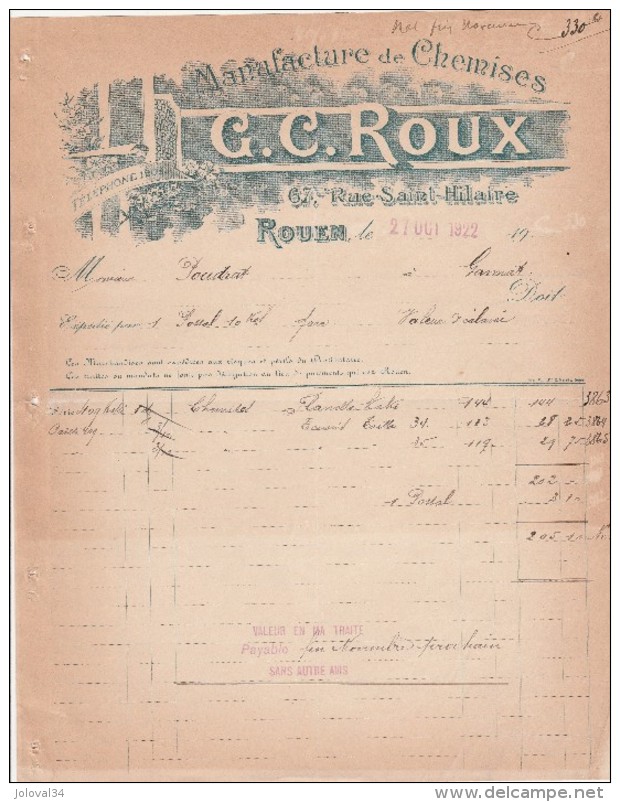 330
Manufacture de Chemises
G.C. ROUX
TÉLÉPHONE
67, Rue Saint-Hilaire
ROUEN, le 27 OCT 1922 19
Monsieur Poudrat à Gannat
Doit
Expédié par 1 Postal 10 Kil gare Valeur déclarée
Ces Marchandises sont confiées aux risques et périls du Destinataire.
Ces traites ou mandats ne font pas dérogation au lieu de paiements qui est Rouen.
Chemises Flanelle 144 144 3863
34 28 3864
35 119 29 75 3865
202
1 Postal 3 10
205 10
VALEUR EN MA TRAITE
Payable fin Novembre prochain
SANS AUTRE AVIS
joloval34
www.delcampe.net